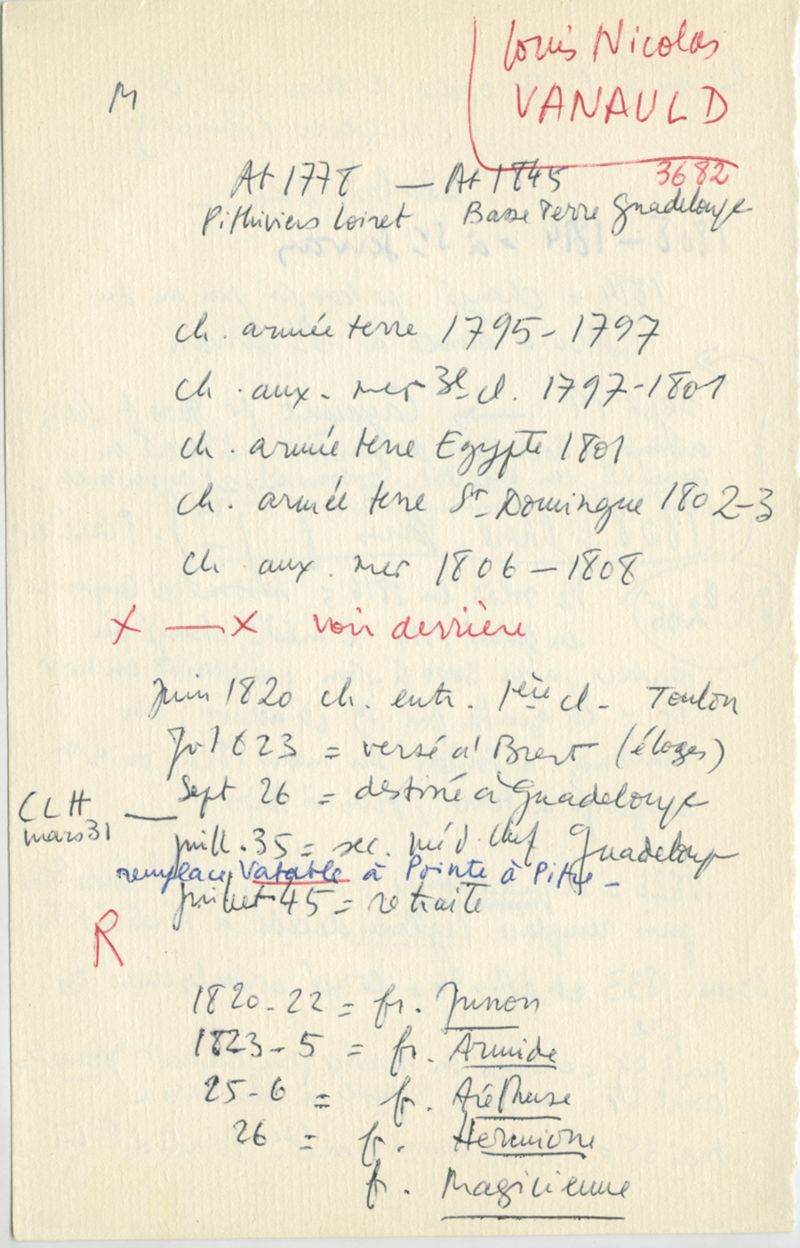 Louis Nicolas
VANAULD
M
3682
At 1778 — At 1845
Pithiviers Loiret Basse Terre Guadeloupe
ch. armée terre 1795-1797
ch. aux. mer 3e cl. 1797-1801
ch. armée terre Egypte 1801
ch. armée terre St Domingue 1802-3
ch aux. mer 1806-1808
X — X voir derrière
Juin 1820 ch. entr. 1ère cl. Toulon
1823 = versé à Brest (éloges)
Sept 26 = destiné à Guadeloupe
CLH
mars 31
juill. 35 = sec. méd. chef Guadeloupe
remplace Vatable à Pointe à Pitre -
juillet 45 = retraite
R
1820-22 = fr. Junon
1823-5 = fr. Armide
25-6 = fr. Aréthuse
26 = fr. Hermione
fr. Magicienne